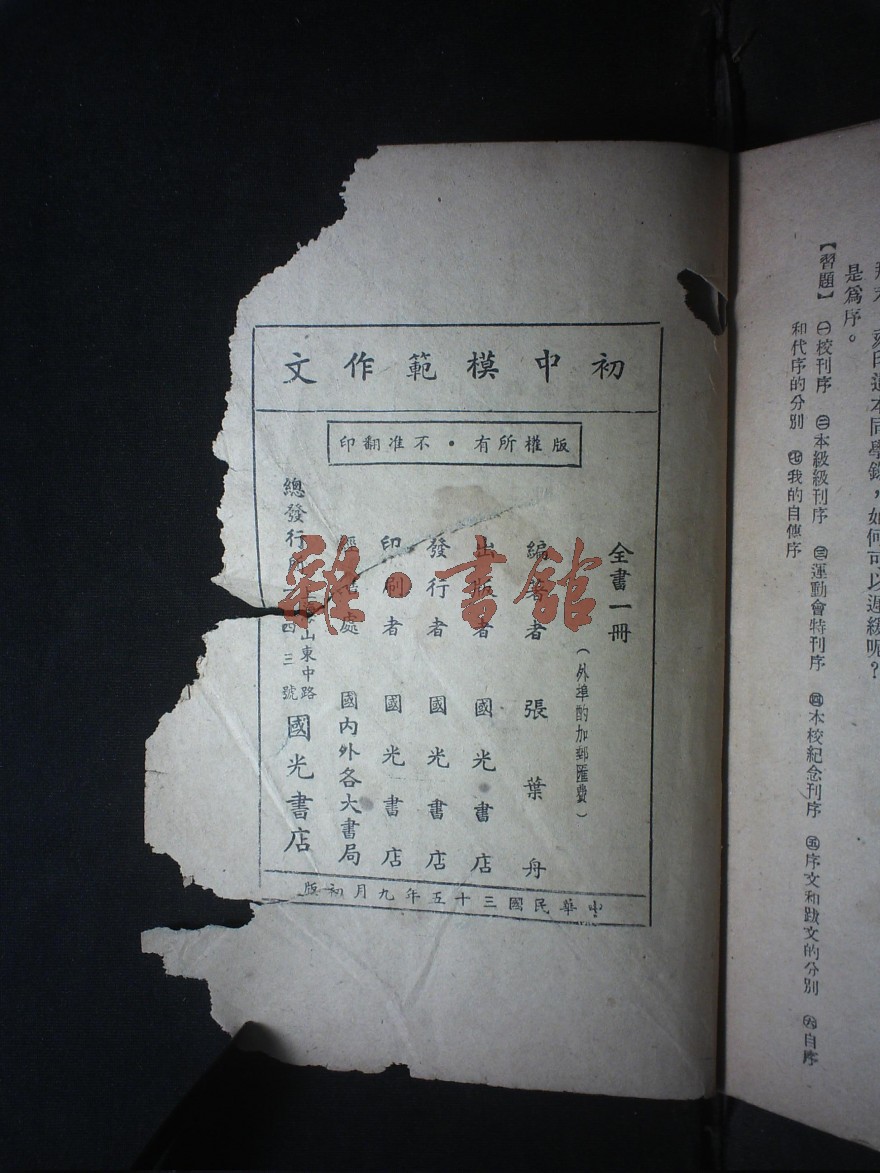 那末，刻印這本同學錄，如何可以遲緩呢？
是爲序。
【習題】㊀校刊序　㊁本級級刊序　㊂運動會特刊序　㊃本校紀念刊序　㊄序文和跋文的分別　㊅自序
和代序的分別　㊆我的自傳序
初中模範作文
版權所有・不准翻印
全書一冊
（外埠酌加郵匯費）
編著者　張葉舟
出版者　國光書店
發行者　國光書店
印刷者　國光書店
經售處　國內外各大書局
總發行所
山東中路
四三號
國光書店
中華民國三十五年九月初版
雜・書館